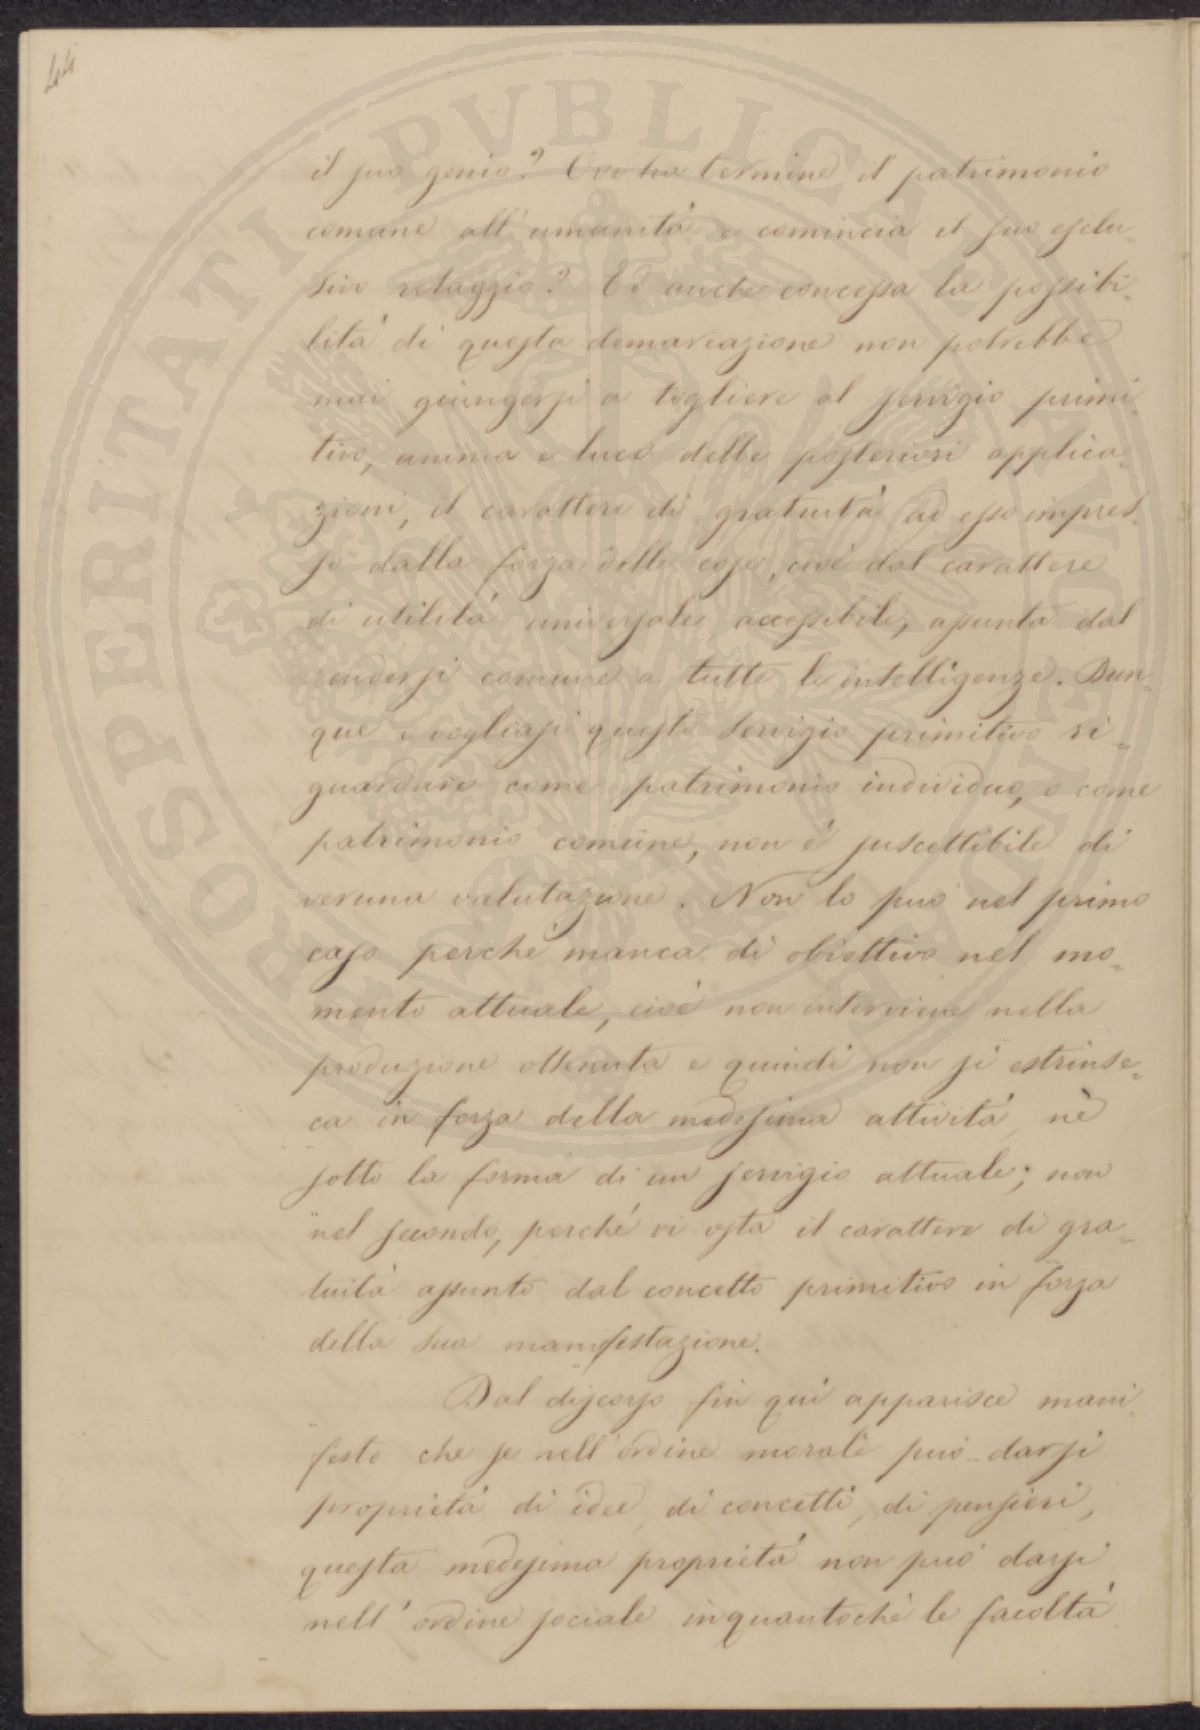 44
il suo genio? Ove ha termine il patrimonio
comune all'umanità e comincia il suo esclu-
sivo retaggio? Ed anche concessa la possibi-
lità di questa demarcazione non potrebbe
mai giungersi a togliere al servigio primi-
tivo, anima e luce delle posteriori applica-
zioni, il carattere di gratuità ad esso impres-
so dalla forza delle cose, cioè dal carattere
di utilità universale, accessibile, assunta dal
rendersi comune a tutte le intelligenze. Dun-
que o vogliasi questo servigio primitivo ri-
guardare come patrimonio individuo, o come
patrimonio comune, non è suscettibile di
veruna valutazione. Non lo può nel primo
caso perché manca di obiettivo nel mo-
mento attuale, cioè non interviene nella
produzione ottenuta e quindi non si estrinse-
ca in forza della medesima attività, nè
sotto la forma di un servigio attuale; non
nel secondo, perché vi osta il carattere di gra-
tuità assunto dal concetto primitivo in forza
della sua manifestazione.
Dal discorso fin qui apparisce mani-
festo che se nell'ordine morale può darsi
proprietà di idee, di concetti, di pensieri,
questa medesima proprietà non può darsi
nell'ordine sociale inquantochè le facoltà
PROSPERITATI PVBLICAE AVGENDAE